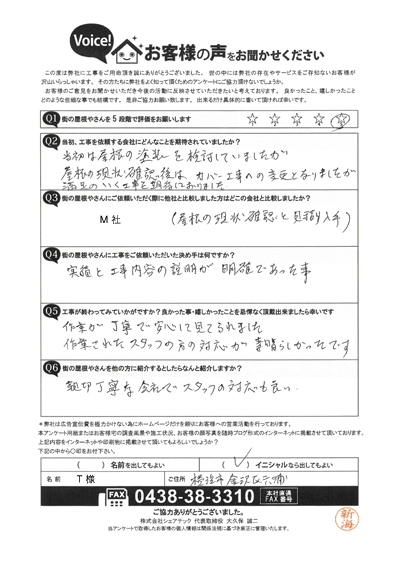 Voice!
お客様の声をお聞かせください
この度は弊社に工事をご用命頂き誠にありがとうございました。世の中には弊社の存在やサービスをご存知ないお客様が
沢山いらっしゃいます。その方たちに弊社をよく知って頂くためのアンケートにご協力頂けないでしょうか。
お客様のご意見をお聞かせいただき今後の活動に反映させていただきたいと考えております。良かったこと、嬉しかったこと
どのような些細な事でも結構です。是非ご協力お願い致します。出来るだけ具体的に書いて頂ければ幸いです。
Q1 街の屋根やさんを5段階で評価をお願いします ☆ ☆ ☆ ☆ ☆
Q2 当初、工事を依頼する会社にどんなことを期待されていましたか?
当初は屋根の塗装を検討していましたが
屋根の現状確認後は、カバー工事への変更となりましたが
Q3 街の屋根やさんにご依頼いただく際に他社と比較しました方はどこの会社と比較しましたか?
M社 (屋根の現状確認と見積り入手)
Q4 街の屋根やさんにご依頼いただいた決め手は何ですか?
実績と工事内容の説明が明確であった事
Q5 工事が終わってみていかがですか?良かった事・嬉しかったことを忌憚なく頂戴出来ましたら幸いです
作業が丁寧で安心して見てられました
作業されたスタッフの方の対応が素晴らしかったです
Q6 街の屋根やさんを他の方に紹介するとしたらなんと紹介しますか?
親切丁寧な会社でスタッフの対応も良い.
*弊社は広告宣伝費を極力かけない為にホームページだけを頼りにお客様への営業活動を行っております。
本アンケート用紙またはお客様宅の調査風景や施工状況、お客様の顔写真を随時ブログ形式のインターネットに掲載させて頂いております。
上記内容をインターネットや印刷物に掲載させて頂いてもよろしいでしょうか?
下記の中から〇印をお付下さい。
( )名前を出してもよい ( ✓ )イニシャルなら出してもよい
名前 T様 ご住所 横浜市金沢区六浦
FAX 0438-38-3310 本社直通FAX番号
ご協力ありがとうございました。
株式会社シェアテック 代表取締役 大久保 誠二
当アンケートで取得したお客様の個人情報は関係法規に基づき厳正に管理いたします。
新海